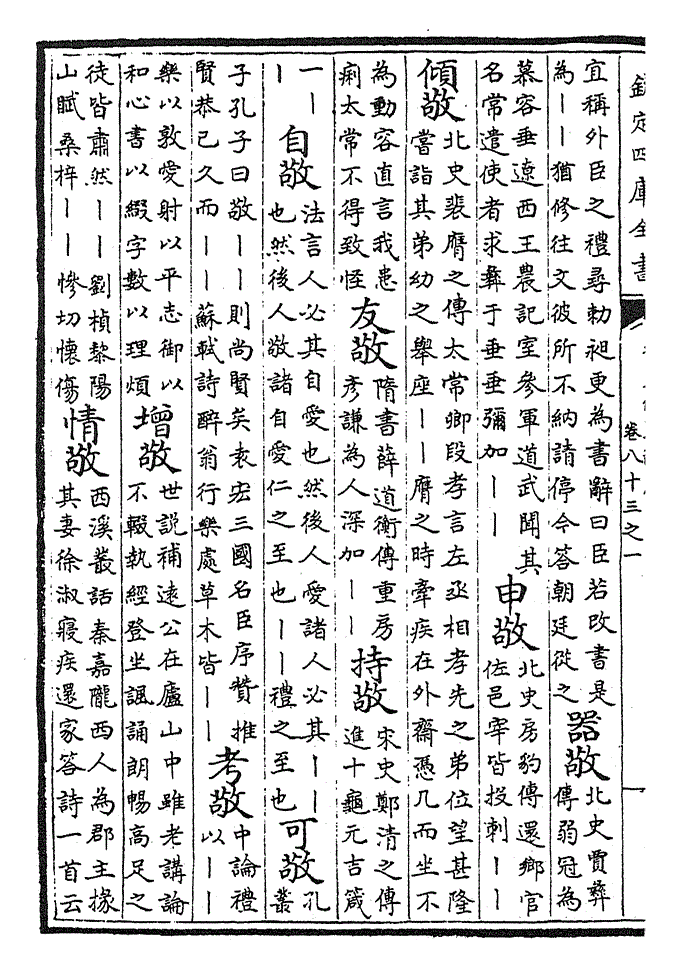 欽定四庫全書
卷八十三之一
一
宜稱外臣之禮尋勅昶更為書辭曰臣若改書是
為——猶修往文彼所不納請停今答朝廷從之
器敬
北史賈彝
傳弱冠為
慕容垂遼西王農記室參軍道武聞其
名常遣使者求彝于垂垂彌加——
申敬
北史房豹傳還鄉官
佐邑宰皆投刺——
傾敬
北史裴膺之傳太常卿段孝言左丞相孝先之弟位望甚隆
嘗詣其弟幼之舉座——膺之時牽疾在外齋憑几而坐不
為動容直言我患
痢太常不得致怪
友敬
隋書薛道衡傳重房
彥謙為人深加——
持敬
宋史鄭清之傳
進十龜元吉箴
一—
—
自敬
法言人必其自愛也然後人愛諸人必其——
也然後人敬諸自愛仁之至也——禮之至也
可敬
孔
叢
子孔子曰敬——則尚賢矣袁宏三國名臣序贊推
賢恭已久而——蘇軾詩醉翁行樂處草木皆——
考敬
中論禮
以——
樂以敦愛射以平志御以
和心書以綴字數以理煩
增敬
世說補遠公在廬山中雖老講論
不輟執經登坐諷誦朗暢高足之
徒皆肅然——劉楨黎陽
山賦桑梓——慘切懷傷
情敬
西溪叢話秦嘉隴西人為郡主掾
其妻徐淑寢疾還家答詩一首云